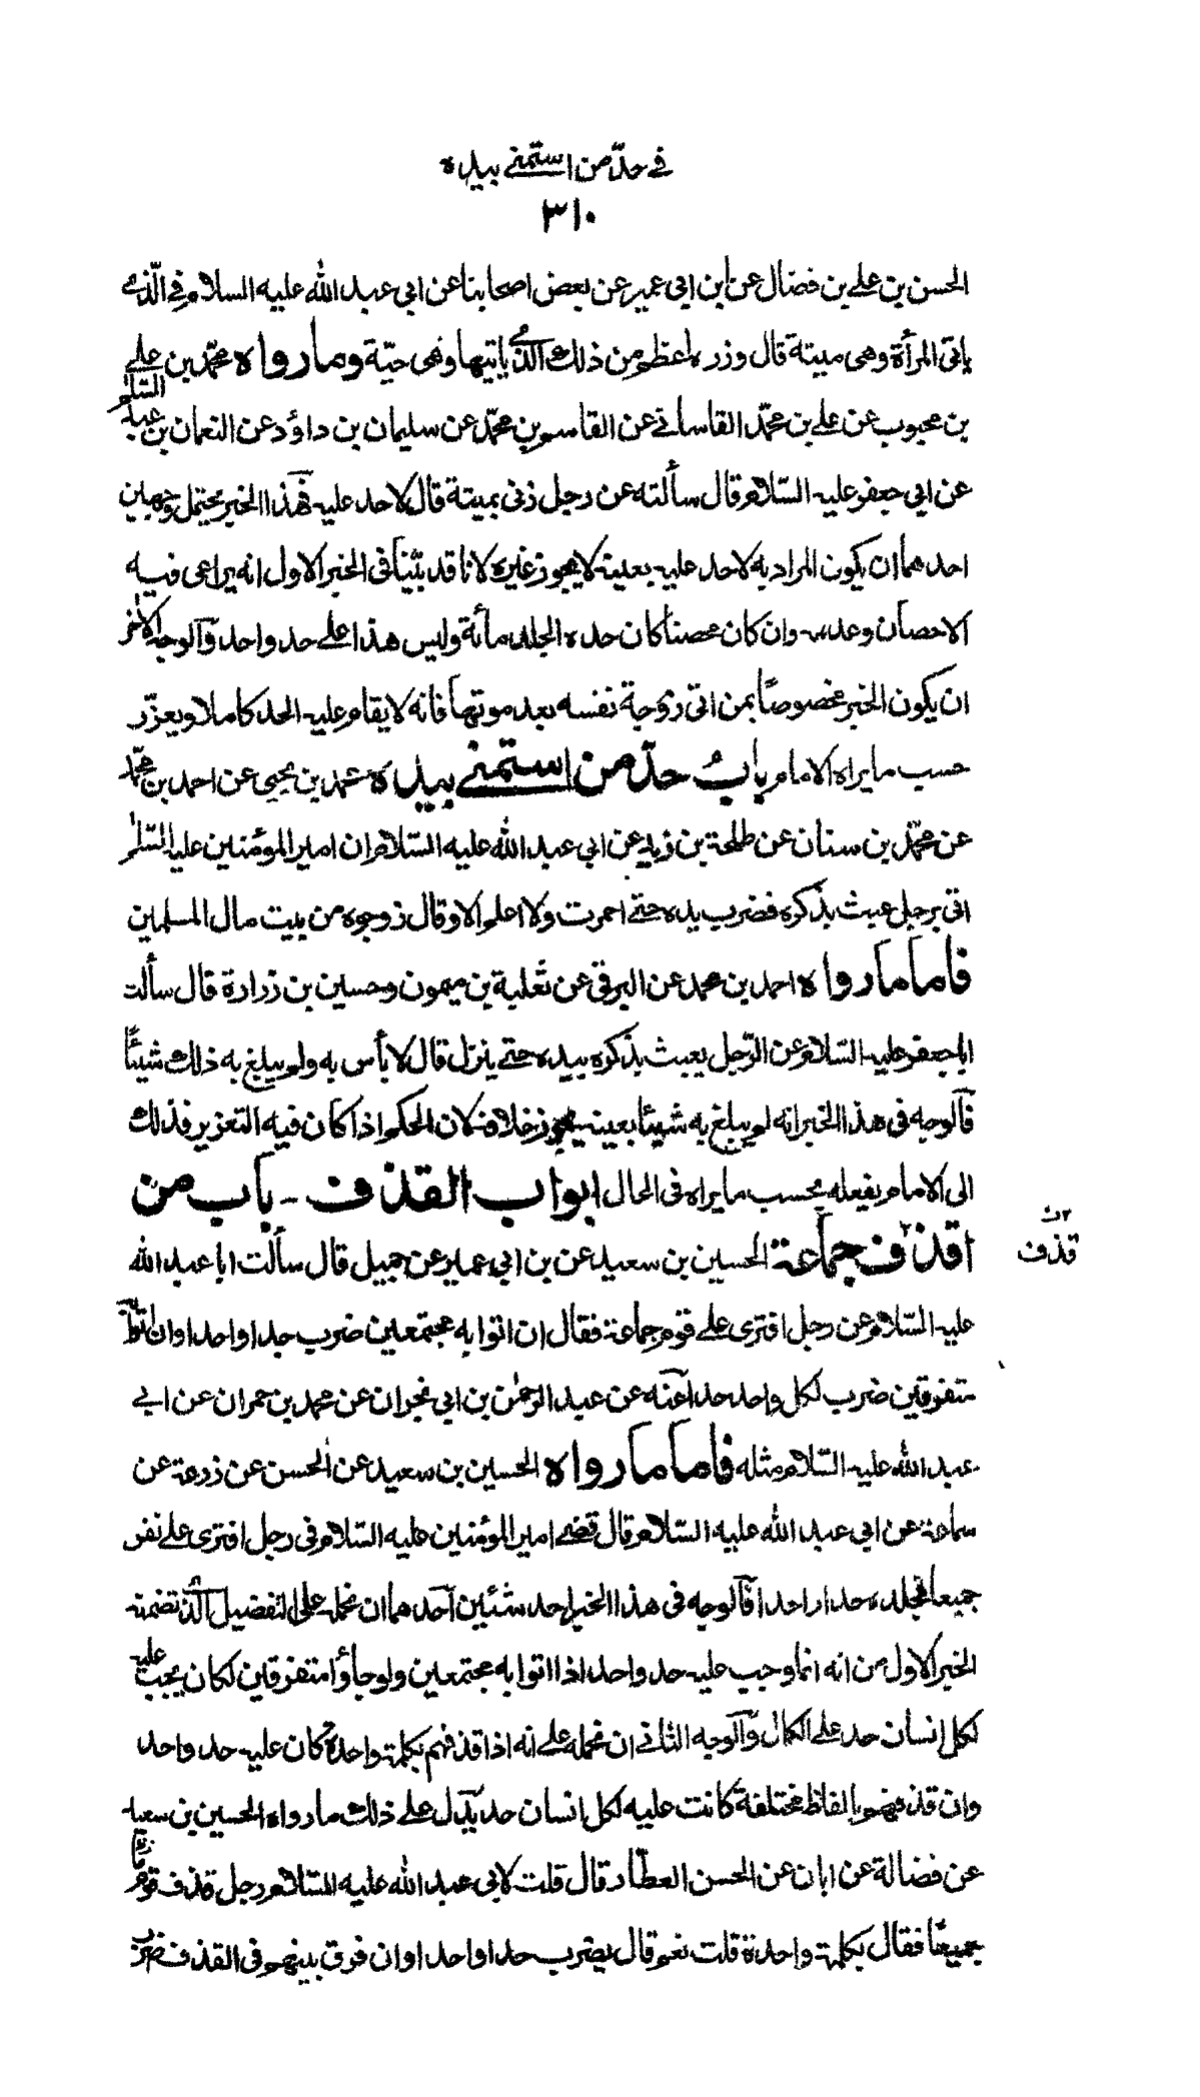 في حدّ من استمنى بيده
٣١٠
الحسن بن علي بن فضال عن ابن ابي عمير عن بعض اصحابنا عن ابي عبد الله عليه السلام في الّذي
ياتي المرأة وهي ميتة قال وزره اعظم من ذلك الّذي ياتيها وهي حيّة وما رواه محمّد بن علي
بن محبوب عن علي بن محمّد القاساني عن القاسم بن محمّد عن سليمان بن داؤد عن النعمان بن عبد السّلام
عن ابي جعفر عليه السّلام قال سألته عن رجل زنى بميتة قال لا حد عليه فهذا الخبر يحتمل وجهين
احدهما ان يكون المراد به لا حد عليه بعينه لا يجوز غيره لانا قد بيّنّا في الخبر الاول انه يراعى فيه
الاحصان وعدمه وان كان محصنا كان حده الجلد مائة وليس هذا على حد واحد والوجه الاخر
ان يكون الخبر مخصوصًا بمن اتى زوجة نفسه بعد موتها فانه لا يقام عليه الحد كاملا ويعزّر
حسب ما يراه الامام باب حدّ من استمنى بيده محمد بن يحيى عن احمد بن محمّد
عن محمّد بن سنان عن طلحة بن زيد عن ابي عبد الله عليه السّلام ان امير المؤمنين عليه السّلم
اتى برجل عبث بذكره فضرب يده حتى احمرت ولا اعلم الا وقال زوجوه من بيت مال المسلمين
فاما ما رواه احمد بن محمد عن البرقي عن ثعلبة بن ميمون وحسين بن زرارة قال سألت
ابا جعفر عليه السّلام عن الرّجل يعبث بذكره بيده حتى ينزل قال لا بأس به ولم يبلغ به ذلك شيئًا
فالوجه في هذا الخبر انه لم يبلغ به شيئا بعينه يجوز خلافه لان الحكم اذا كان فيه التعزير فذلك
الى الامام يفعله بحسب ما يراه في الحال ابواب القذف - باب من
اقذف جماعة الحسين بن سعيد عن بن ابي عمير عن جميل قال سألت ابا عبد الله
قذف
عليه السّلام عن رجل افترى على قوم جماعة فقال ان اتوا به مجتمعين ضرب حدا واحدا وان اتوا به
متفرقين ضرب لكل واحد حدا عنه عن عبد الرحمٰن بن ابي نجران عن محمد بن حمران عن ابي
عبد الله عليه السّلام مثله فاما ما رواه الحسين بن سعيد عن الحسن عن زرعة عن
سماعة عن ابي عبد الله عليه السّلام قال قضى امير المؤمنين عليه السّلام في رجل افترى على نفر
جميعا فجلده حدا واحدا فالوجه في هذا الخبر احد شئين احدهما ان نحمله على التفصيل الّذي تضمنه
الخبر الاول من انه انما وجب عليه حد واحد اذا اتوا به مجتمعين ولو جاؤا متفرقين لكان يجب عليه
لكل انسان حد على الكمال والوجه الثاني ان نحمله على انه اذا قذفهم بكلمة واحدة كان عليه حد واحد
وان قذفهم بالفاظ مختلفة كانت عليه لكل انسان حد يدل على ذلك ما رواه الحسين بن سعيد
عن فضالة عن ابان عن الحسن العطّار قال قلت لابي عبد الله عليه السّلام رجل قذف قوما
جميعًا فقال بكلمة واحدة قلت نعم قال يضرب حدا واحدا وان فرق بينهم في القذف ضرب